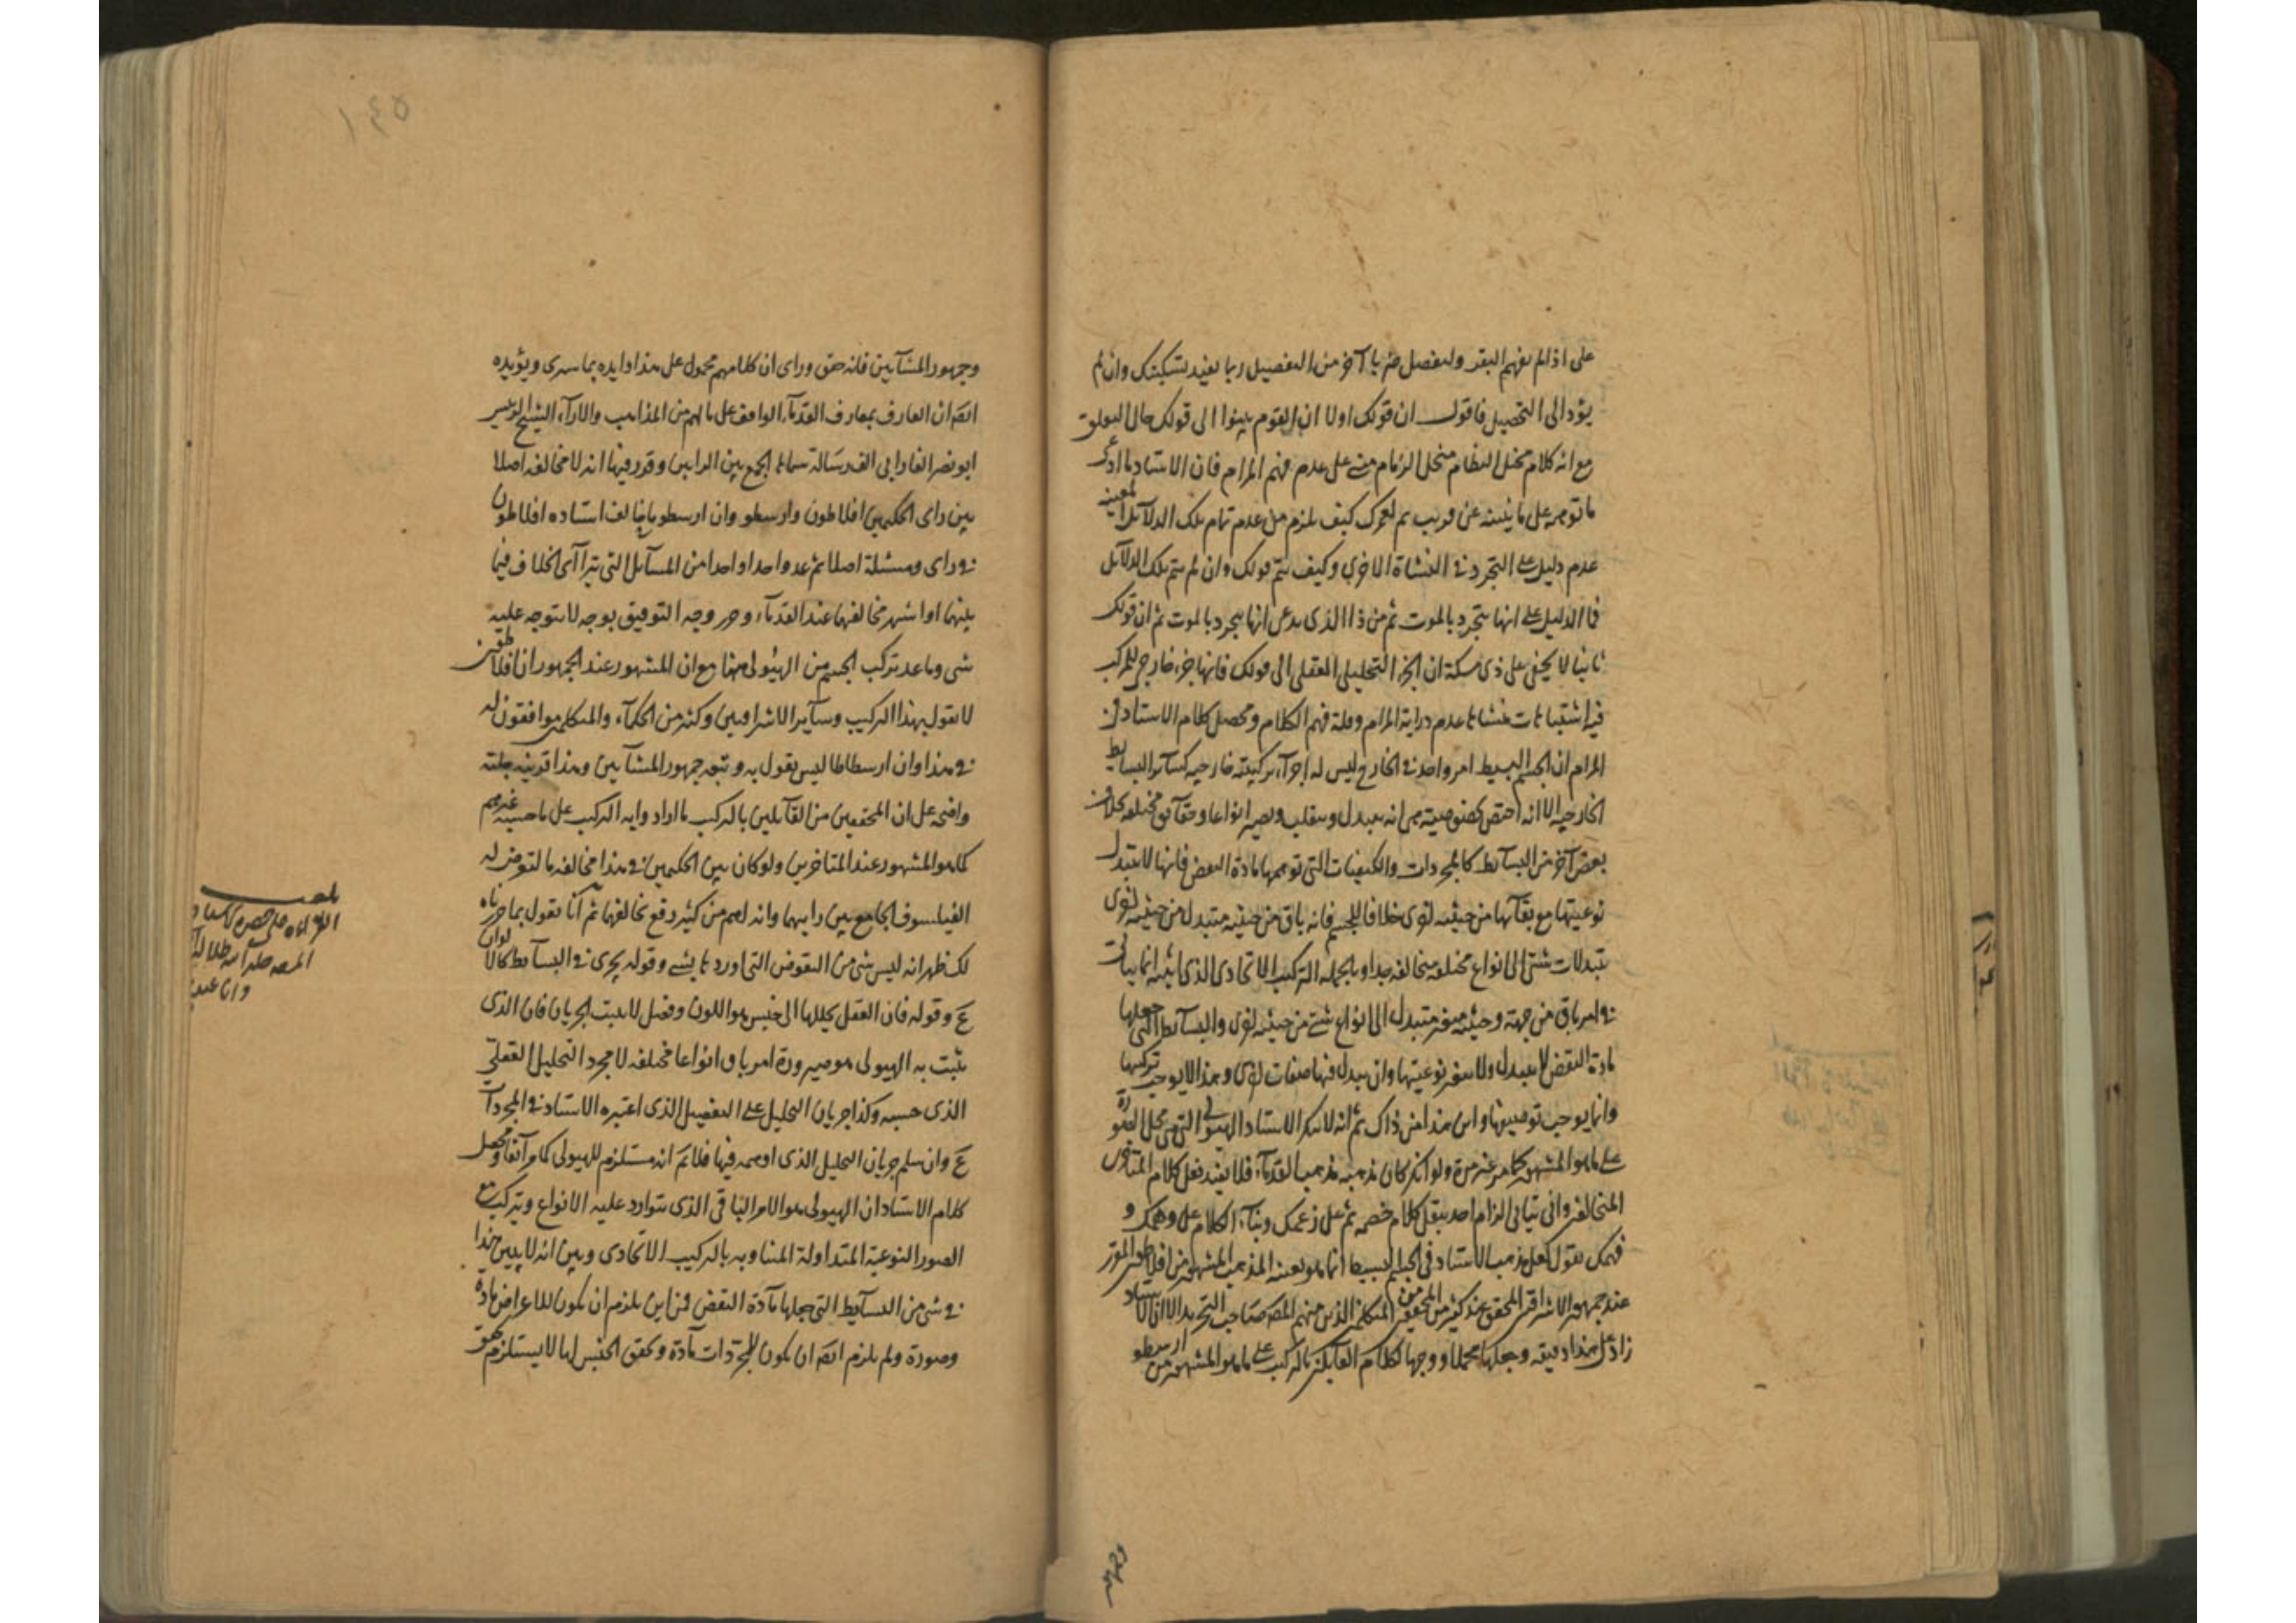 على اذا لم يفهم البقر ولنفصل ضربا آخر من التفصيل ربما يفيد تسكيتك وان لم
يؤد الى التحصيل فاقول ان قولك اولا ان القوم بينوا الى قولك حال التعلق
مع انه كلام مختل النظام منحل الزمام مبنى على عدم فهم المرام فان الاستاد ما ادعى
ما توهمه على ما بينته عن قريب ثم لعمرك كيف يلزم من عدم تمام تلك الدلائل المعينة
عدم دليل على التجرد فى النشاة الاخرى وكيف يتم قولك وان لم يتم تلك الدلائل
فما الدليل على انها يتجرد بالموت ثم من ذا الذى يدعى انها يتجرد بالموت ثم ان قولك
ثانيا لا يخفى على ذى مسكة ان الجزء التحليلى العقلى الى قولك فانها جزء خارجى للمركب
فيه اشتباهات منشاها عدم دراية المرام وقلة فهم الكلام ومحصل كلام الاستاد فى
المرام ان الجسم البسيط امر واحد فى الخارج ليس له اجزآء تركيبية خارجية كسائر البسايط
الخارجية الا انه اختص بخصوصية هى انه يتبدل وينقلب ويصير انواعا وحقآئق مختلفة بخلاف
بعض آخر من البسآئط كالمجردات والكيفيات التى توهمها مادة النقض فانها لا يتبدل
نوعيتها مع بقآئها من حيثية اخرى خلافا للجسم فانه باق من حيثية متبدل من حيثية اخرى
بتبدلات شتى الى انواع مختلفة متخالفة جدا وبالجملة التركيب الاتحادى الذى اثبته انما يتأتى
فى امر باق من جهة وحيثية متغير متبدل الى انواع شتى من حيثية اخرى والبسآئط التى جعلها
مادة النقض لا يتبدل ولا يتغير نوعيتها وان يتبدل فيها صفات اخرى وهذا لا يوجب تركيبها
وانما يوجب توصيفها واين هذا من ذاك ثم انه لا ينكر الاستاد الهيولى التى هى محل الصورة
على ما هو المشهور كما مر غير مرة ولو انكر كان مذهبه مذهب القدمآء فلا يفيد نقل كلام المتأخرين
المتخالفين وانى يتأتى الزام احد بنقل كلام خصمه ثم على زعمك وبنآء الكلام على وهمك و
فهمك نقول لعل مذهب الاستاد فى الجسم البسيط انما هو بعينه المذهب المشهور من افلاطون المقرر
عند جمهور الاشراقين المحقق عند كثير من المحققين من المتكلمين الذين منهم المصنف صاحب التجريد الا ان الاستاد
زاد على هذا دقيقة وجعلها محملا ووجها لكلام القآئلين بالتركيب على ما هو المشهور من ارسطو
وجمهور المشآئين فانه حقق وراى ان كلامهم محمول على هذا وايده بما سرى ويؤيده
ايضا ان العارف بمعارف القدمآء الواقف على ما لهم من المذاهب والارآء الشيخ الرئيس
ابو نصر الفارابى الف رسالة سماها الجمع بين الرايين وقرر فيها انه لا مخالفة اصلا
بين راى الحكيمين افلاطون وارسطو وان ارسطو ما خالف استاده افلاطون
فى راى ومسئلة اصلا ثم عد واحدا واحدا من المسآئل التى يترآاى الخلاف فيها
بينهما او اشتهر تخالفهما عند القدمآء وحرر وجه التوفيق بوجه لا يتوجه عليه
شى وما عد تركب الجسم من الهيولى منها مع ان المشهور عند الجمهور ان افلاطون
لا يقول بهذا التركيب وسآير الاشراقيين وكثير من الحكمآء والمتكلمين موافقون له
فى هذا وان ارسطاطاليس يقول به وتبعه جمهور المشآئين وهذا قرينة جلية
واضحة على ان المحققين من القآئلين بالتركيب ما اراد وايه التركيب على ما حسبه غيرهم
كما هو المشهور عند المتاخرين ولو كان بين الحكيمين فى هذا مخالفة ما لتعرض له
الفيلسوف الجامع بين راييهما وانه لاهم من كثير دفع تخالفهما ثم انا نقول بما حررناه
لك ظهر انه ليس شى من النقوض التى اوردها بشىء وقوله يجرى فى البسآئط كالالوان
ع وقوله فان العقل يحللها الى جنس هو اللون وفصل لا يثبت الجريان فان الذى
يثبت به الهيولى هو صيرورة امر باق انواعا مختلفة لا مجرد التحليل العقلى
الذى حسبه وكذا جريان التحليل على التفصيل الذى اعتبره الاستاد فى المجردات
ع وان سلم جريان التحليل الذى اوهمه فيها فلا نم انه مستلزم للهيولى كما مر آنفا ومحصل
كلام الاستاد ان الهيولى هو الامر الباقى الذى يتوارد عليه الانواع ويتركب مع
الصور النوعية المتداولة المتناوبة بالتركيب الاتحادى وبين انه لا يتبين هذا
فى شى من البسآيط التى جعلها مآدة النقض فمن اين يلزم ان يكون للاعراض مادة
وصورة ولم يلزم ايضا ان يكون للمجردات مآدة وتحقق الجنس لها لا يستلزم تحقق